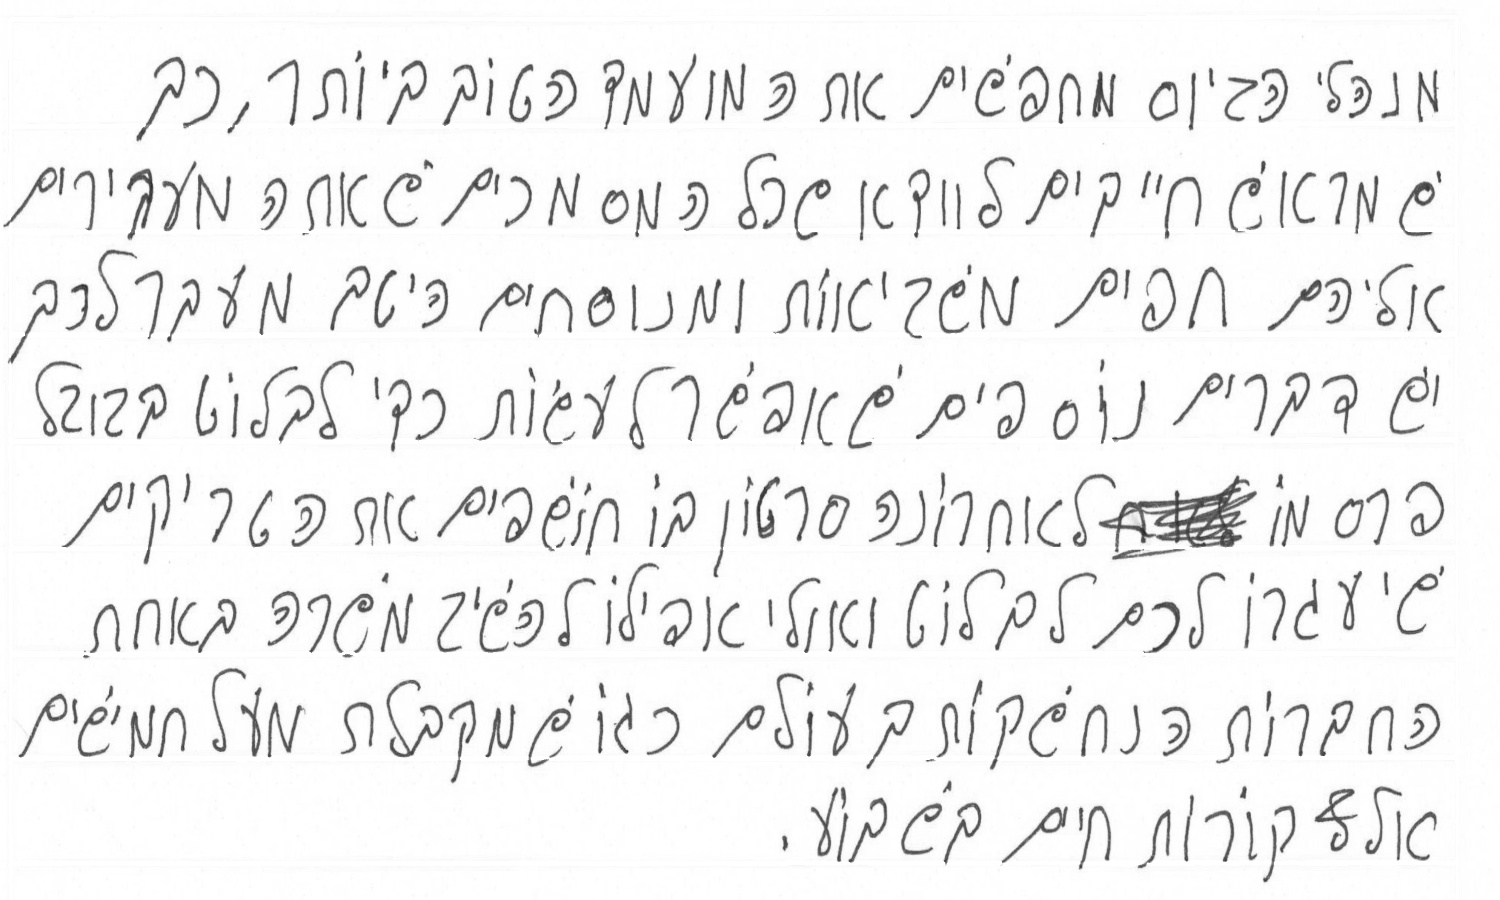 מנהלי הגיוס מחפשים את המועמד הטוב ביותר, כך
שמראש חייבים לוודא שכל המסמכים שאתה מעבירים
אליהם חפים משגיאות ומנוסחים היטב מעבר לכך
יש דברים נוספים שאפשר לעשות כדי לבלוט בגוגל
פרסמו לאחרונה סרטון בו חושפים את הטריקים
שיעזרו לכם לבלוט ואולי אפילו להשיג משרה באחת
החברות הנחשקות בעולם כזו שמקבלת מעל חמישים
אלף קורות חיים בשבוע.